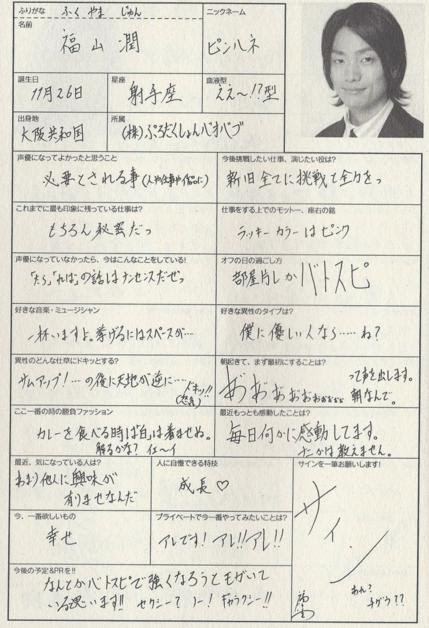 ふりがな
ふく やま じゅん
ニックネーム
名前
福山潤
ピンハネ
誕生日
星座
血液型
11月26日
射手座
ええ〜!?型
出身地
所属
大阪共和国
(株)ぷろだくしょんバオバブ
声優になってよかったと思うこと
今後挑戦したい仕事、演じたい役は?
必要とされる事(人や仕事や作品に)
新旧全てに挑戦で全力をっ
これまでに最も印象に残っている仕事は?
仕事をする上でのモットー、座右の銘
もちろん秘密だっ
ラッキーカラーはピンク
声優になっていなかったら、今はこんなことをしている!
オフの日の過ごし方
「たら」「れば」の話はナンセンスだぜっ
部屋片しかバトスピ
好きな音楽・ミュージシャン
好きな異性のタイプは?
一杯いますよ。挙げるにはスペースが…
僕に優しい人なら……ね?
異性のどんな仕草にドキッとする?
朝起きて、まず最初にすることは?
サムアップ!…の後に天地が逆に…
ドキッ!!
あ゛ぉぉぉぉぉぉぉぉ
って声を出します。
朝なんで。
ここ一番の時の勝負ファッション
最近もっとも感動したことは?
カレーを食べる時は「白」は着ませぬ。
解るかな? イェ〜イ
毎日何かに感動してます。
ナニかは教えません。
最近、気になっている人は?
人に自慢できる特技
サインを一筆お願いします!
あまり他人に興味が
有りませなんだ
成長♡
サイン
今、一番欲しいもの
プライベートで今一番やってみたいことは?
幸せ
アレです!アレ!!アレ!!
今後の予定&PRを!!
なんとかバトスピで強くなろうともがいて
いる思います!! セクシー? ノー! ギャラクシー!!
あれ?
チガウ??